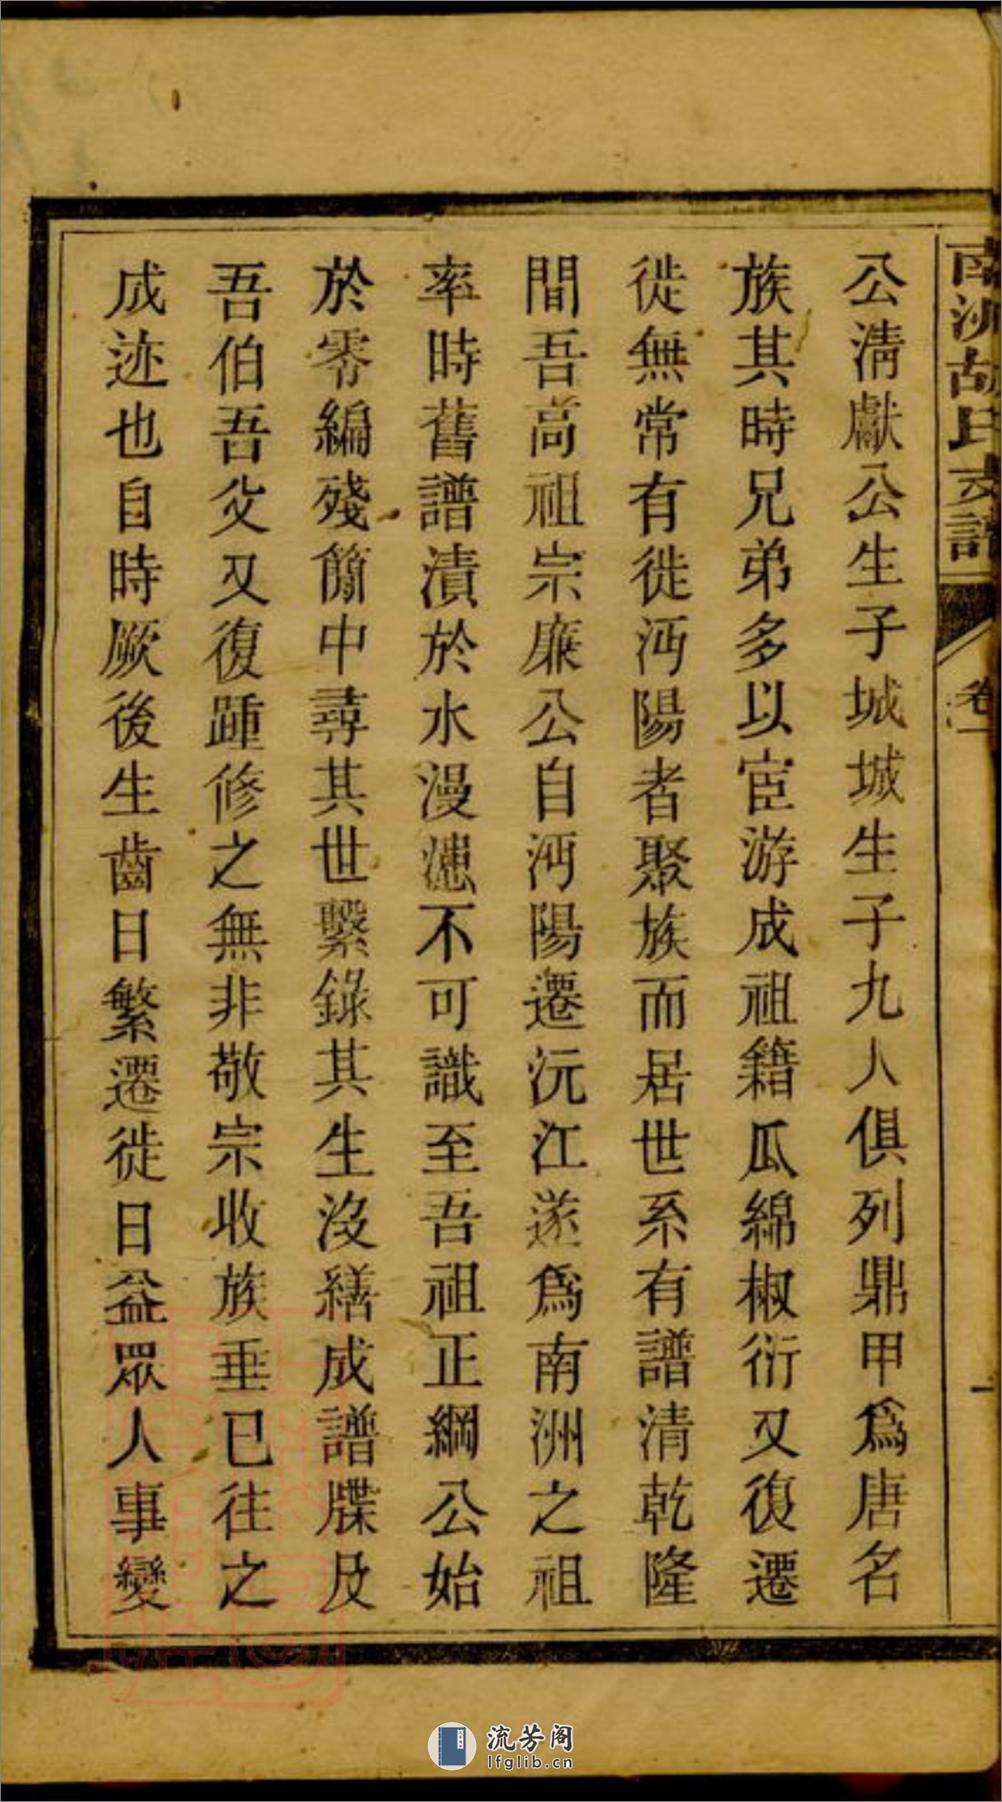 南洲胡氏支譜
卷一
一
公淸獻公生子城城生子九人俱列鼎甲爲唐名
族其時兄弟多以宦游成祖籍瓜綿椒衍又復遷
徙無常有徙沔陽者聚族而居世系有譜清乾隆
間吾高祖宗廉公自沔陽遷沅江遂爲南洲之祖
率時舊譜漬於水漫漶不可識至吾祖正綱公始
於零編殘簡中尋其世繫錄其生沒繕成譜牒及
吾伯吾父又復踵修之無非敬宗收族垂已往之
成迹也自時厥後生齒日繁遷徙日益眾人事變
流芳阁
lfglib.cn